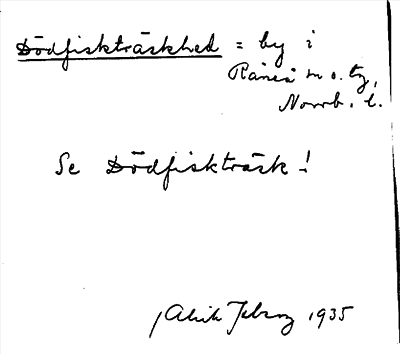 Dödfiskträskhed = by i
Råneå sn o. tg,
Norrb. l.
Se Dödfiskträsk!
1935